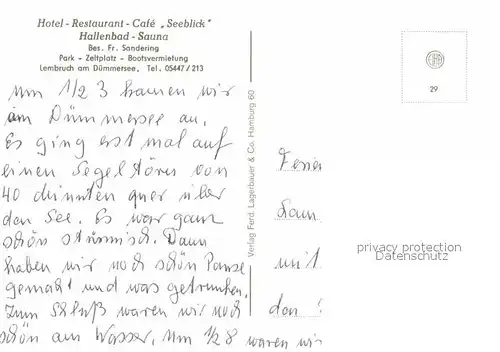 Hotel - Restaurant - Café „Seeblick"
Hallenbad - Sauna
Bes. Fr. Sandering
Park - Zeltplatz - Bootsvermietung
Lembruch am Dümmersee, Tel. 05447/213
um 1/2 3 kamen wir
am Dümmersee an.
Es ging erst mal auf
einen Segeltörn von
40 minuten quer über
den See. Es war ganz
schön stürmisch. Dann
haben wir noch schön Pause
gemacht und was getrunken.
Zum Schluß waren wir noch
schön am Wasser. Um 1/2 8 waren wir
Verlag Ferd. Lagerbauer & Co. Hamburg 60
29
Ferien
Sam
mit
den
privacy protection
Datenschutz